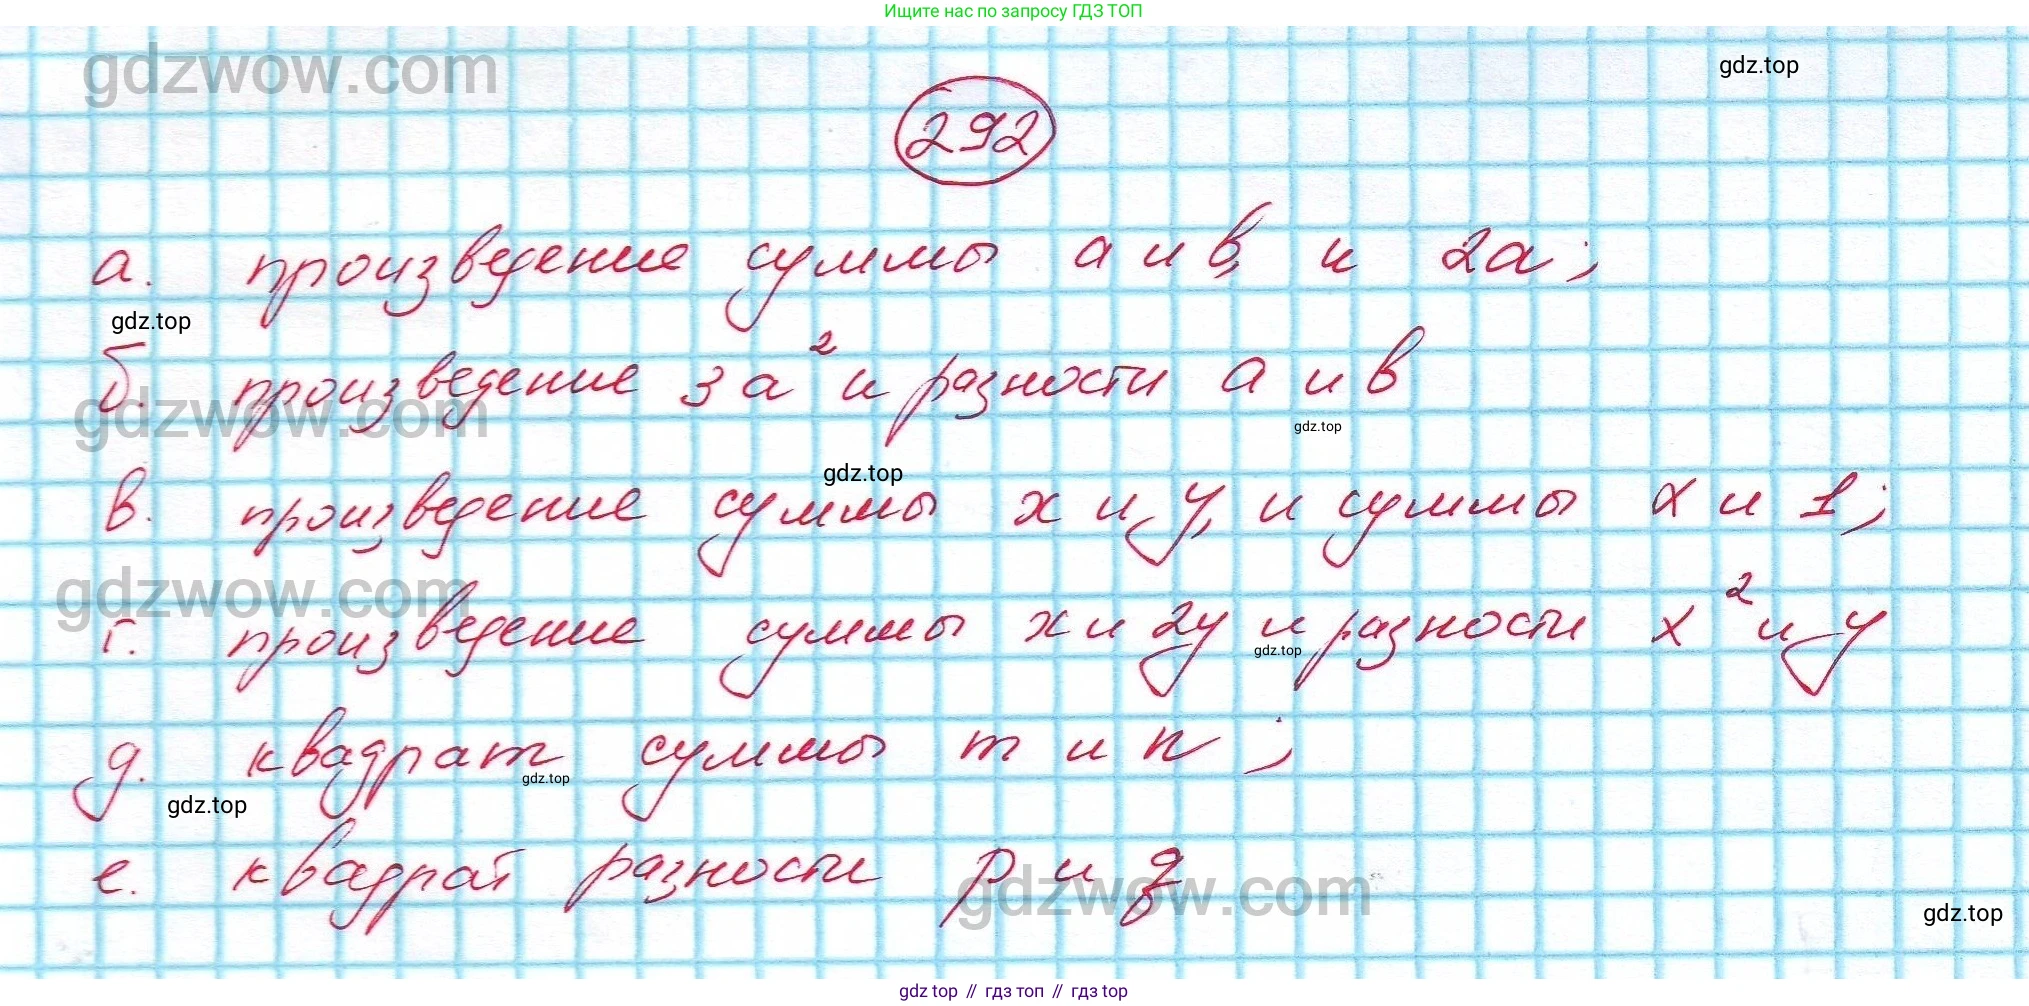 Ищите нас по запросу ГДЗ ТОП
gdzwow.com
gdz.top
292
а. произведение суммы a и b, и 2a;
gdz.top
б. произведение 3a² и разности a и b
gdzwow.com
gdz.top
gdz.top
в. произведение суммы x и y, и суммы x и 1;
gdzwow.com
г. произведение суммы x и 2y и разности x² и y
gdz.top
д. квадрат суммы m и n;
gdz.top
gdz.top
е. квадрат разности p и q
gdzwow.com
gdz.top
gdz top // гдз топ // гдз top